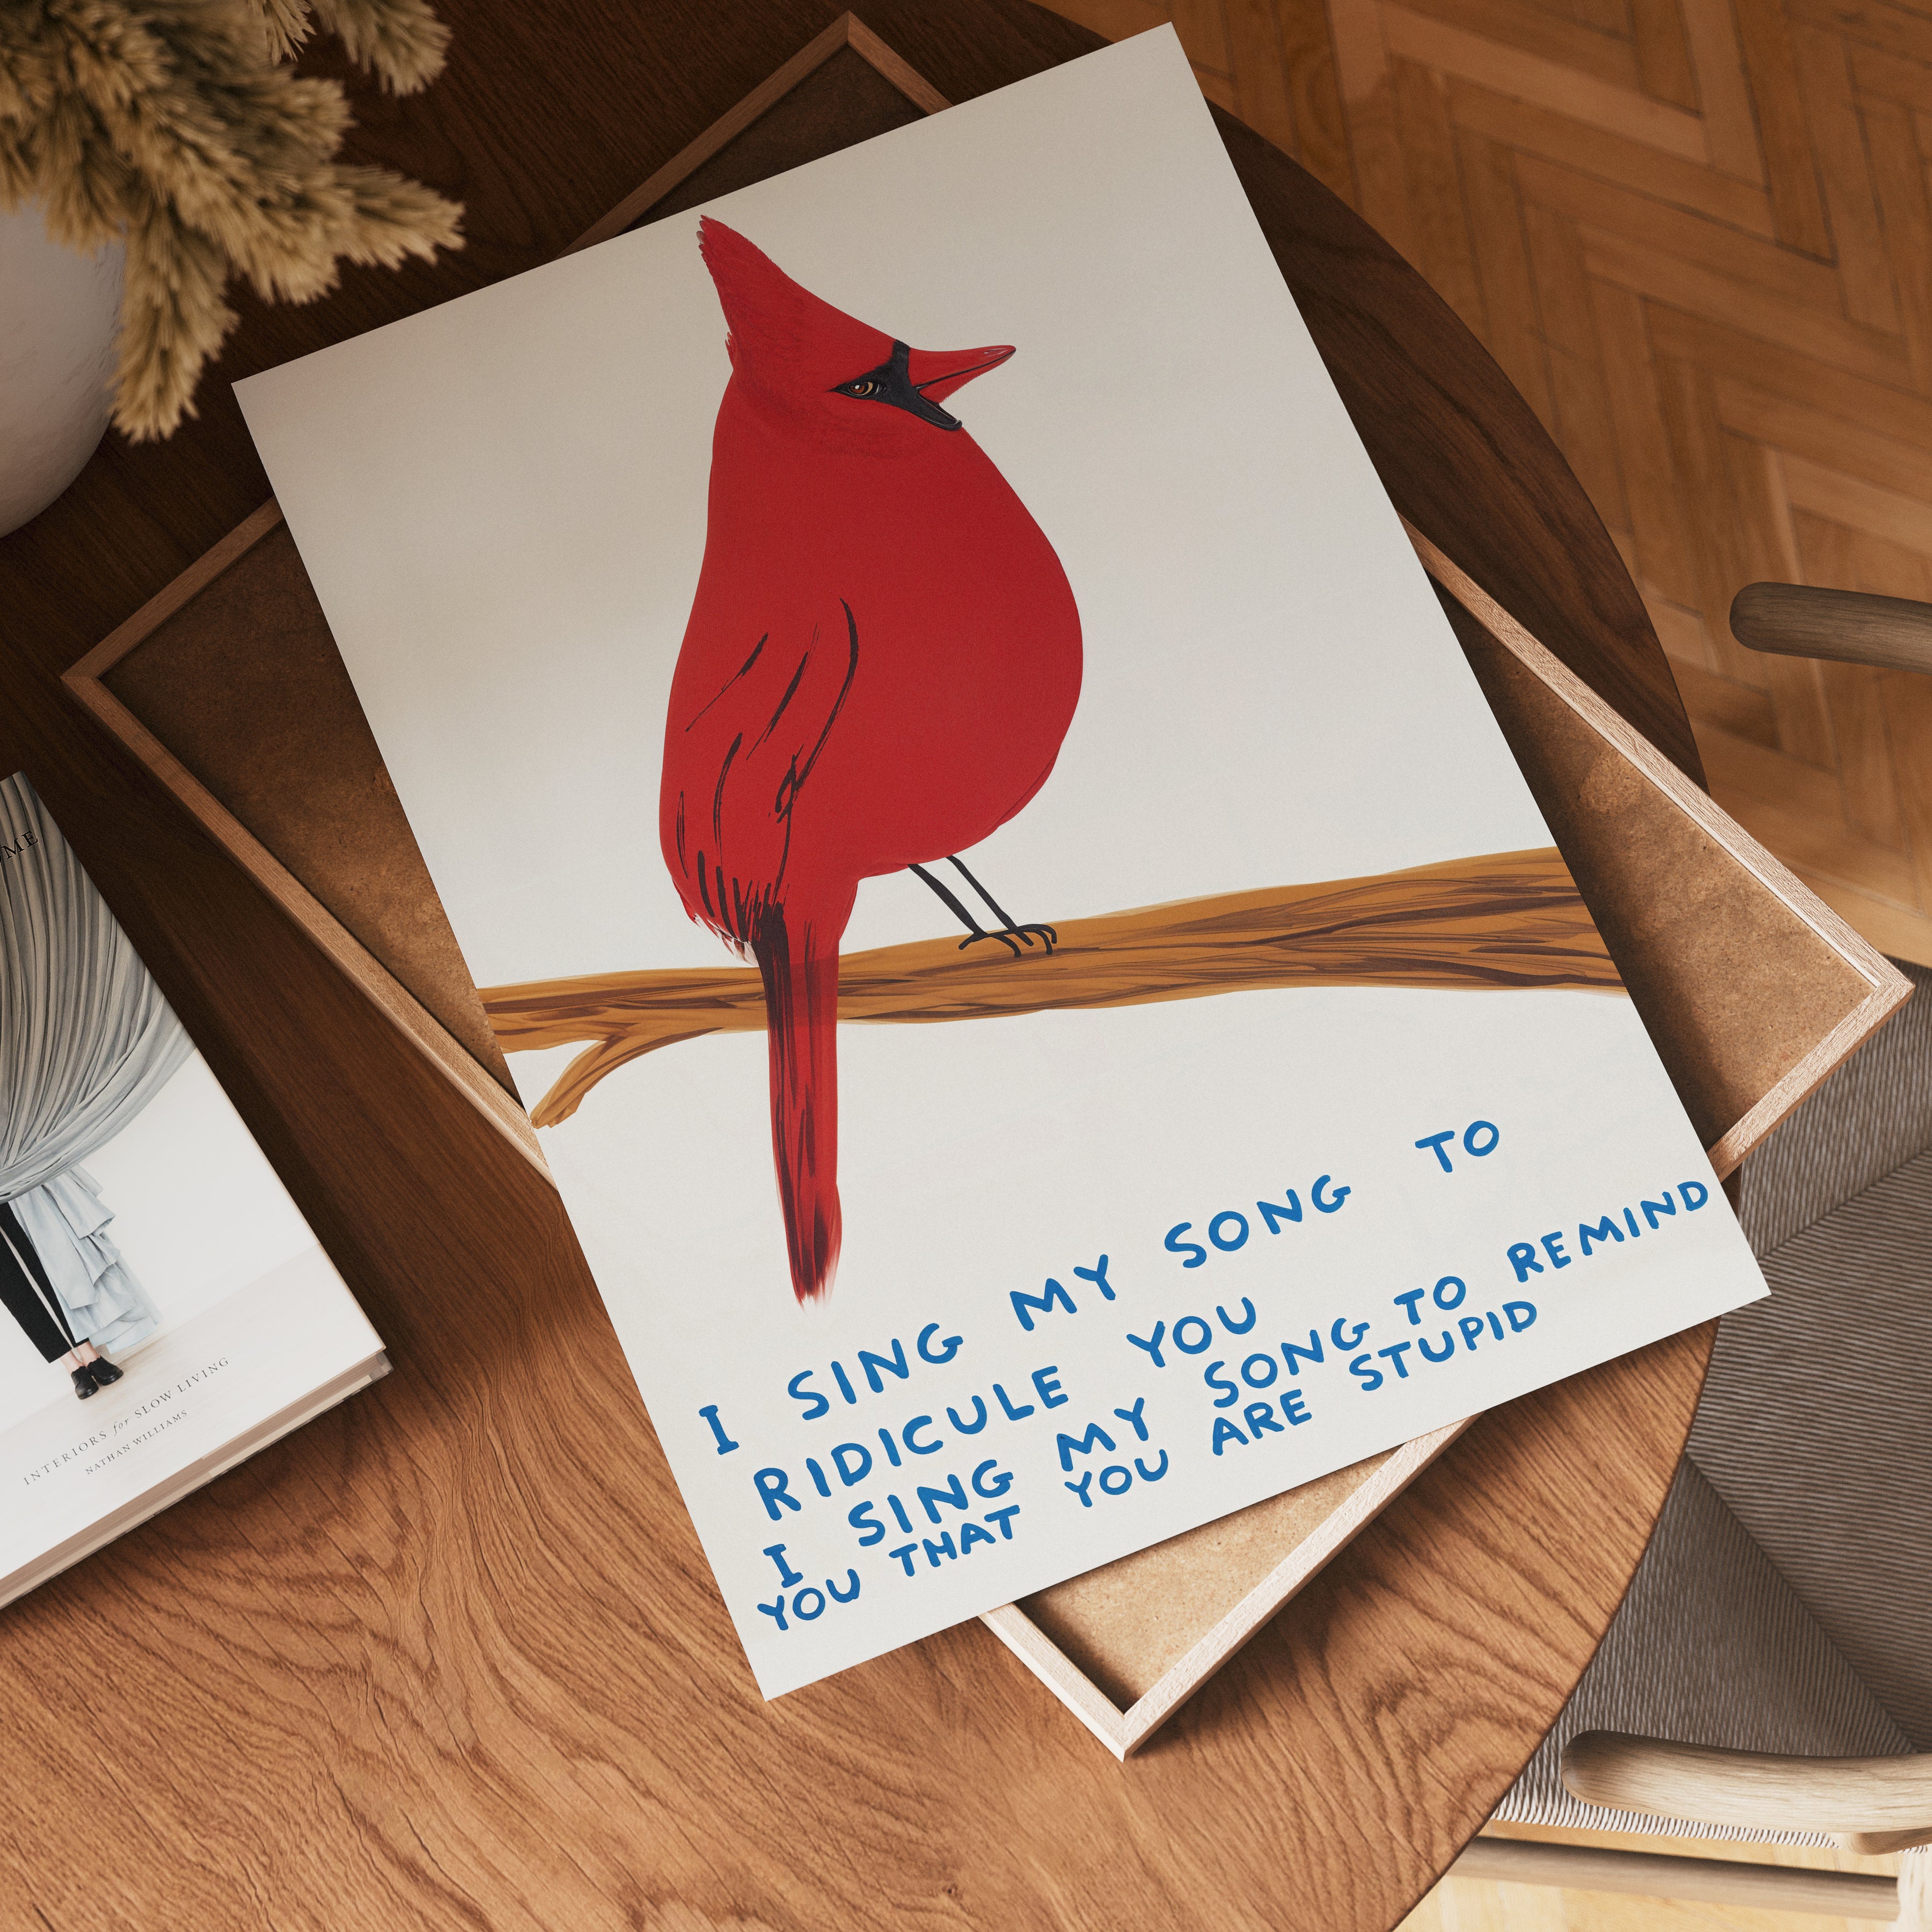 I SING MY SONG TO
RIDICULE YOU
I SING MY SONG TO REMIND
YOU THAT YOU ARE STUPID
INTERIORS for SLOW LIVING
NATHAN WILLIAMS